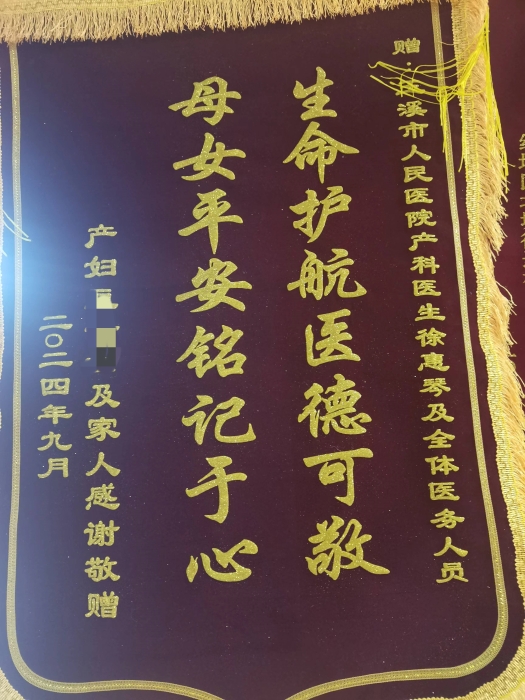 赠:溪市人民医院产科医生徐惠琴及全体医务人员
生命护航医德可敬
母女平安铭记于心
产妇及家人感谢敬赠
二〇二四年九月